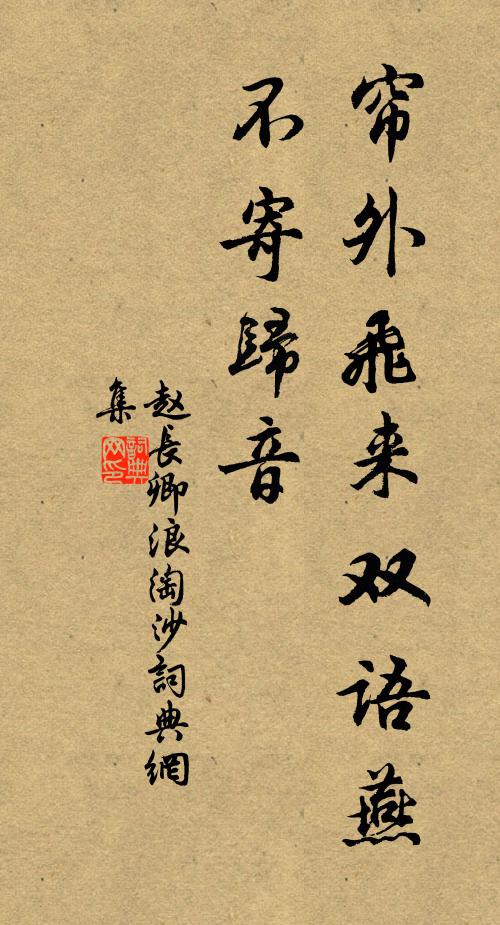 帘外飛来双语燕
不寄歸音
赵長卿浪淘沙詞典網
集
詞典网印